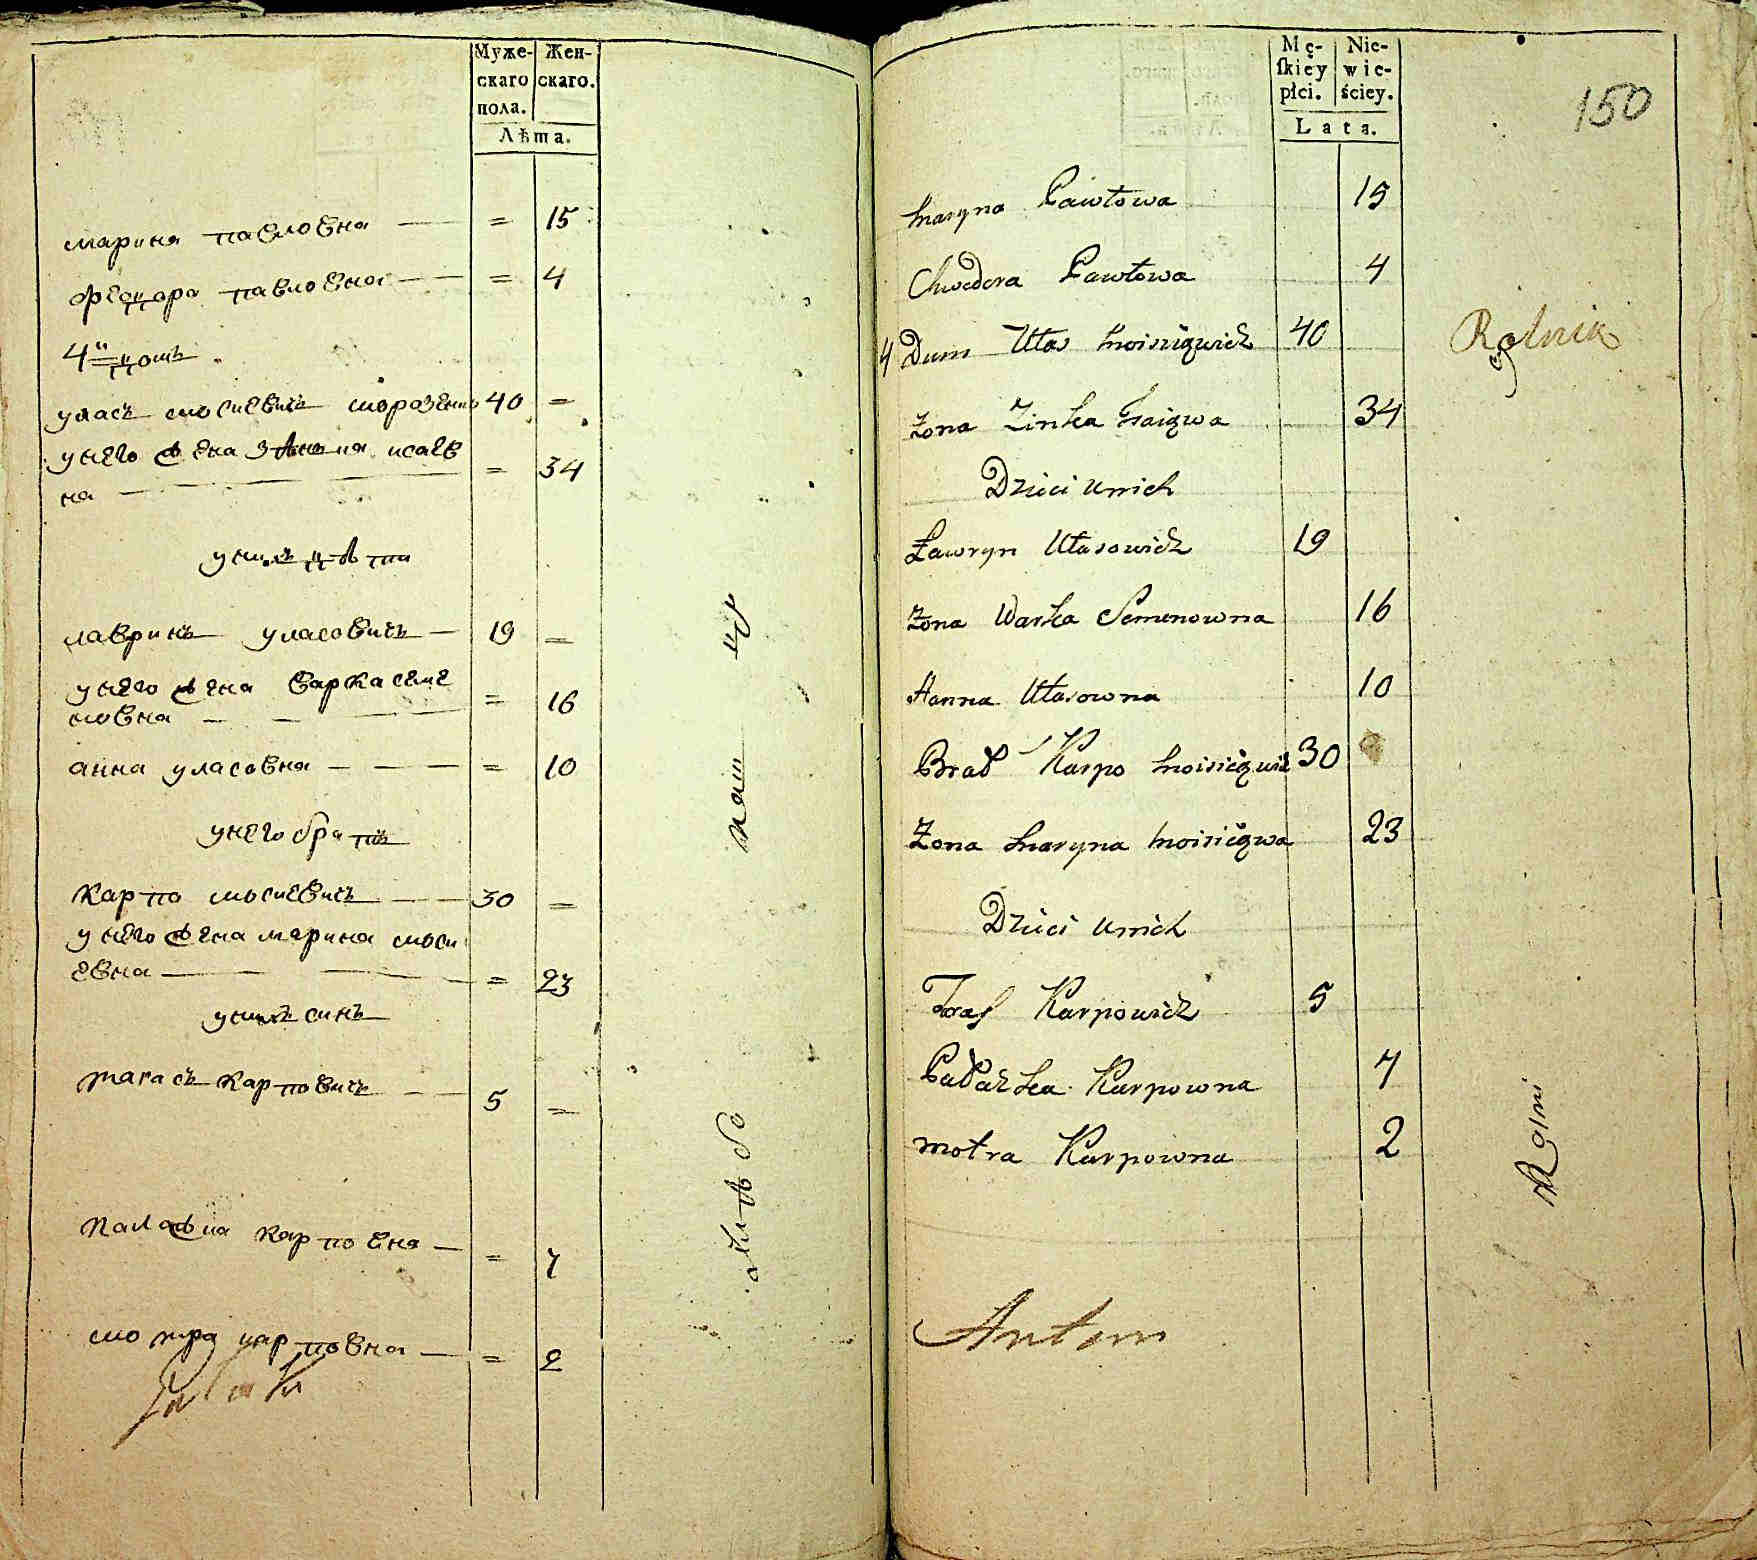 Муже-
скаго
пола.
Жен-
скаго.
Лѣта.
марина павловна — = 15
федора павловна — — = 4
4й домъ
уласъ мосиевичъ морозенко 40 =
унего жена зѣнька исаев
на — = 34
унихъ дѣти
лавринъ уласовичъ — 19 =
унего жена варка семе
новна — — = 16
анна уласовна — — — = 10
унего братъ
карпо мосиевичъ — — 30 =
унего жена марина моси
евна — = 23
унихъ синъ
тарасъ карповичъ — — 5 =
палажка карповна — = 7
мотра карповна — = 2
Mę-
skiey
płci.
Nie-
wie-
ściey.
Lata.
150
Maryna Pawłowa 15
Chwedora Pawłowa 4
4 Dum Ułas Moisiiowicz 40
Rolnik
Żona Zinka Isaiowa 34
Dzieci unich
Ławryn Ułasowicz 19
Żona Warka Semenowna 16
Hanna Ułasowna 10
Brat Karpo Moisieiowicz 30
Żona Maryna Moisieiowa 23
Dzieci unich
Taras Karpowicz 5
Pałażka Karpowna 7
Motra Karpowna 2
Rolni
Antoni